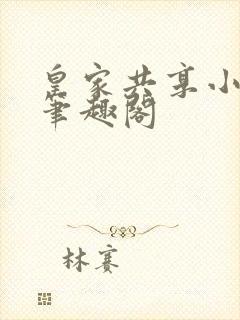 皇家共享小
笔趣阁
林赛